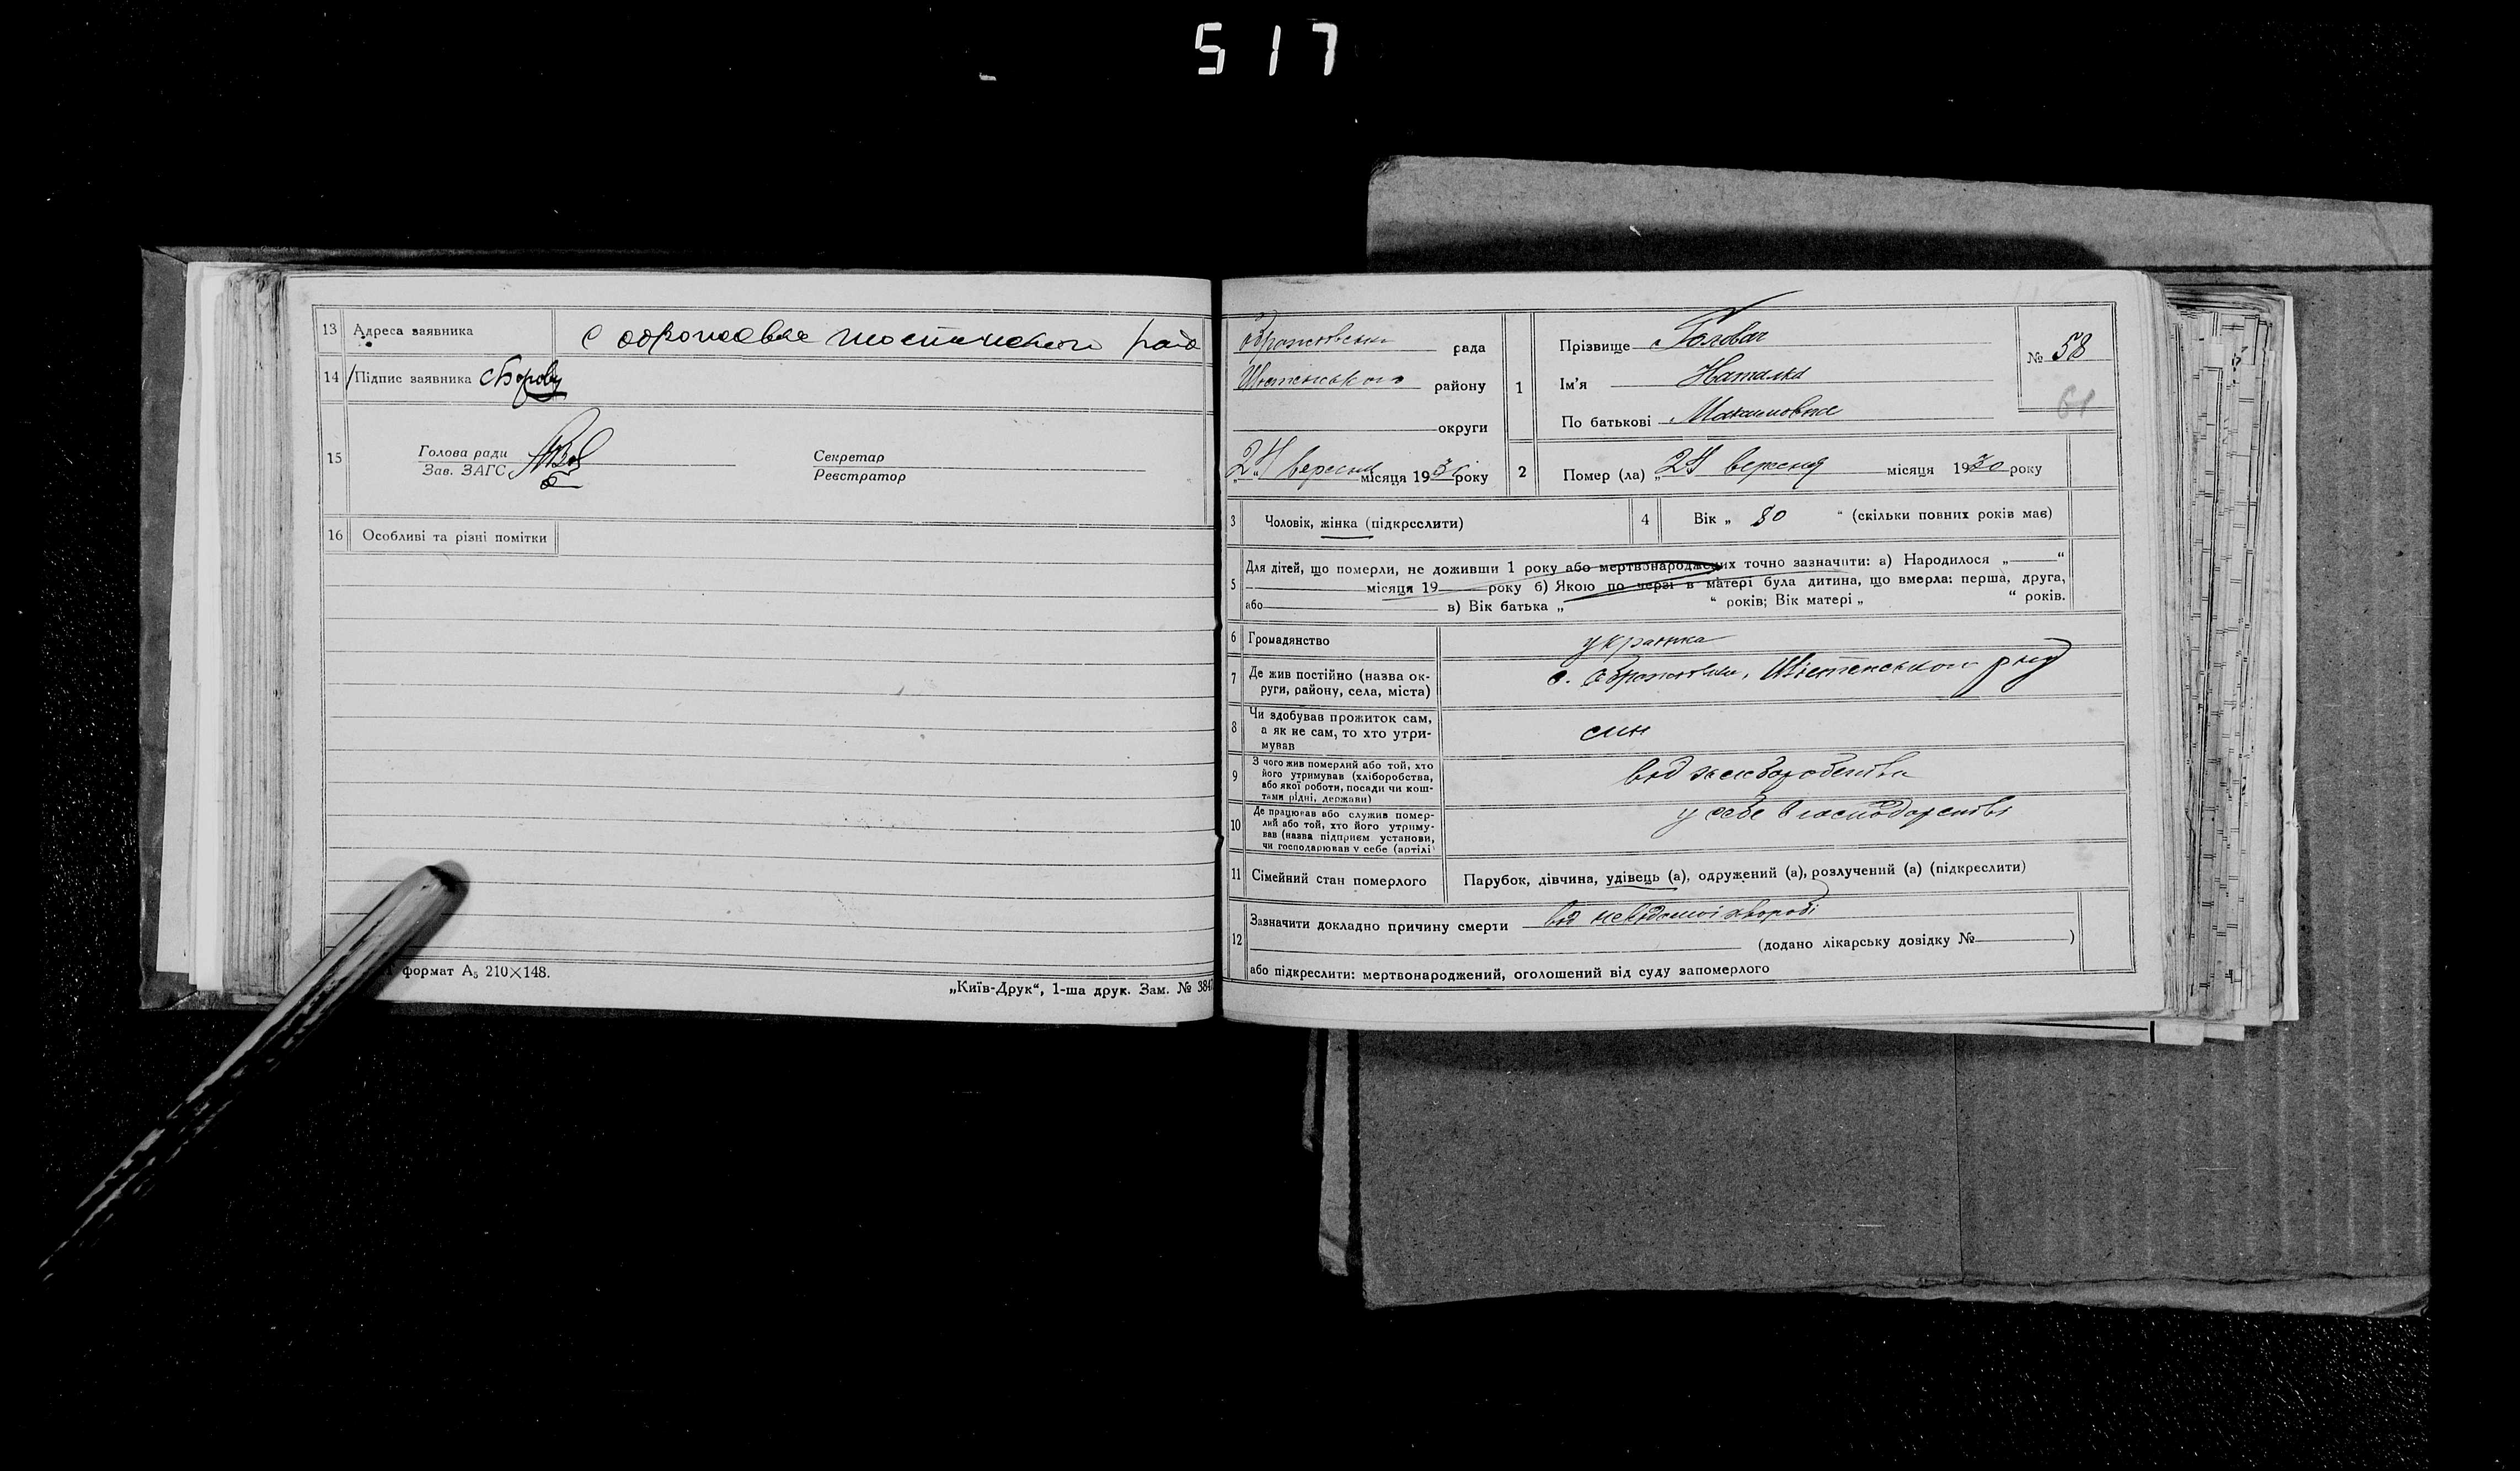 517
13 Адреса заявника с Ображиевка Шостенського рай
14 Підпис заявника
15 Голова ради
Зав. ЗАГС
Секретар
Реєстратор
16 Особливі та різні помітки
формат А₅ 210×148.
„Київ-Друк“, 1-ша друк. Зам. № 384
рада
Шостенського району
округи
вересня місяця 1930 року
1 Прізвище Головач
Ім’я Наталка
По батькові Максимовна
№ 58
61
2 Помер (ла) „ вересня місяця 1930 року
3 Чоловік, жінка (підкреслити)
4 Вік „ 80 “ (скільки повних років має)
5 Для дітей, що померли, не доживши 1 року або мертвонароджених точно зазначити: а) Народилося „ “
місяця 19 року б) Якою по черзі в матері була дитина, що вмерла: перша, друга,
або в) Вік батька „ “ років; Вік матері „ “ років.
6 Громадянство українка
7 Де жив постійно (назва ок-
руги, району, села, міста)
с. Шостенського рну
8 Чи здобував прожиток сам,
а як не сам, то хто утри-
мував
син
9 З чого жив померлий або той, хто
його утримував (хліборобства,
або якої роботи, посади чи кош-
тами рідні, держави)
від хліборобства
10 Де працював або служив помер-
лий або той, хто його утриму-
вав (назва підприєм установи,
чи господарював у себе (артілі)
у себе в господарстві
11 Сімейний стан померлого Парубок, дівчина, удівець (а), одружений (а), розлучений (а) (підкреслити)
12 Зазначити докладно причину смерти від невідомої хвороби
(додано лікарську довідку № )
або підкреслити: мертвонароджений, оголошений від суду запомерлого